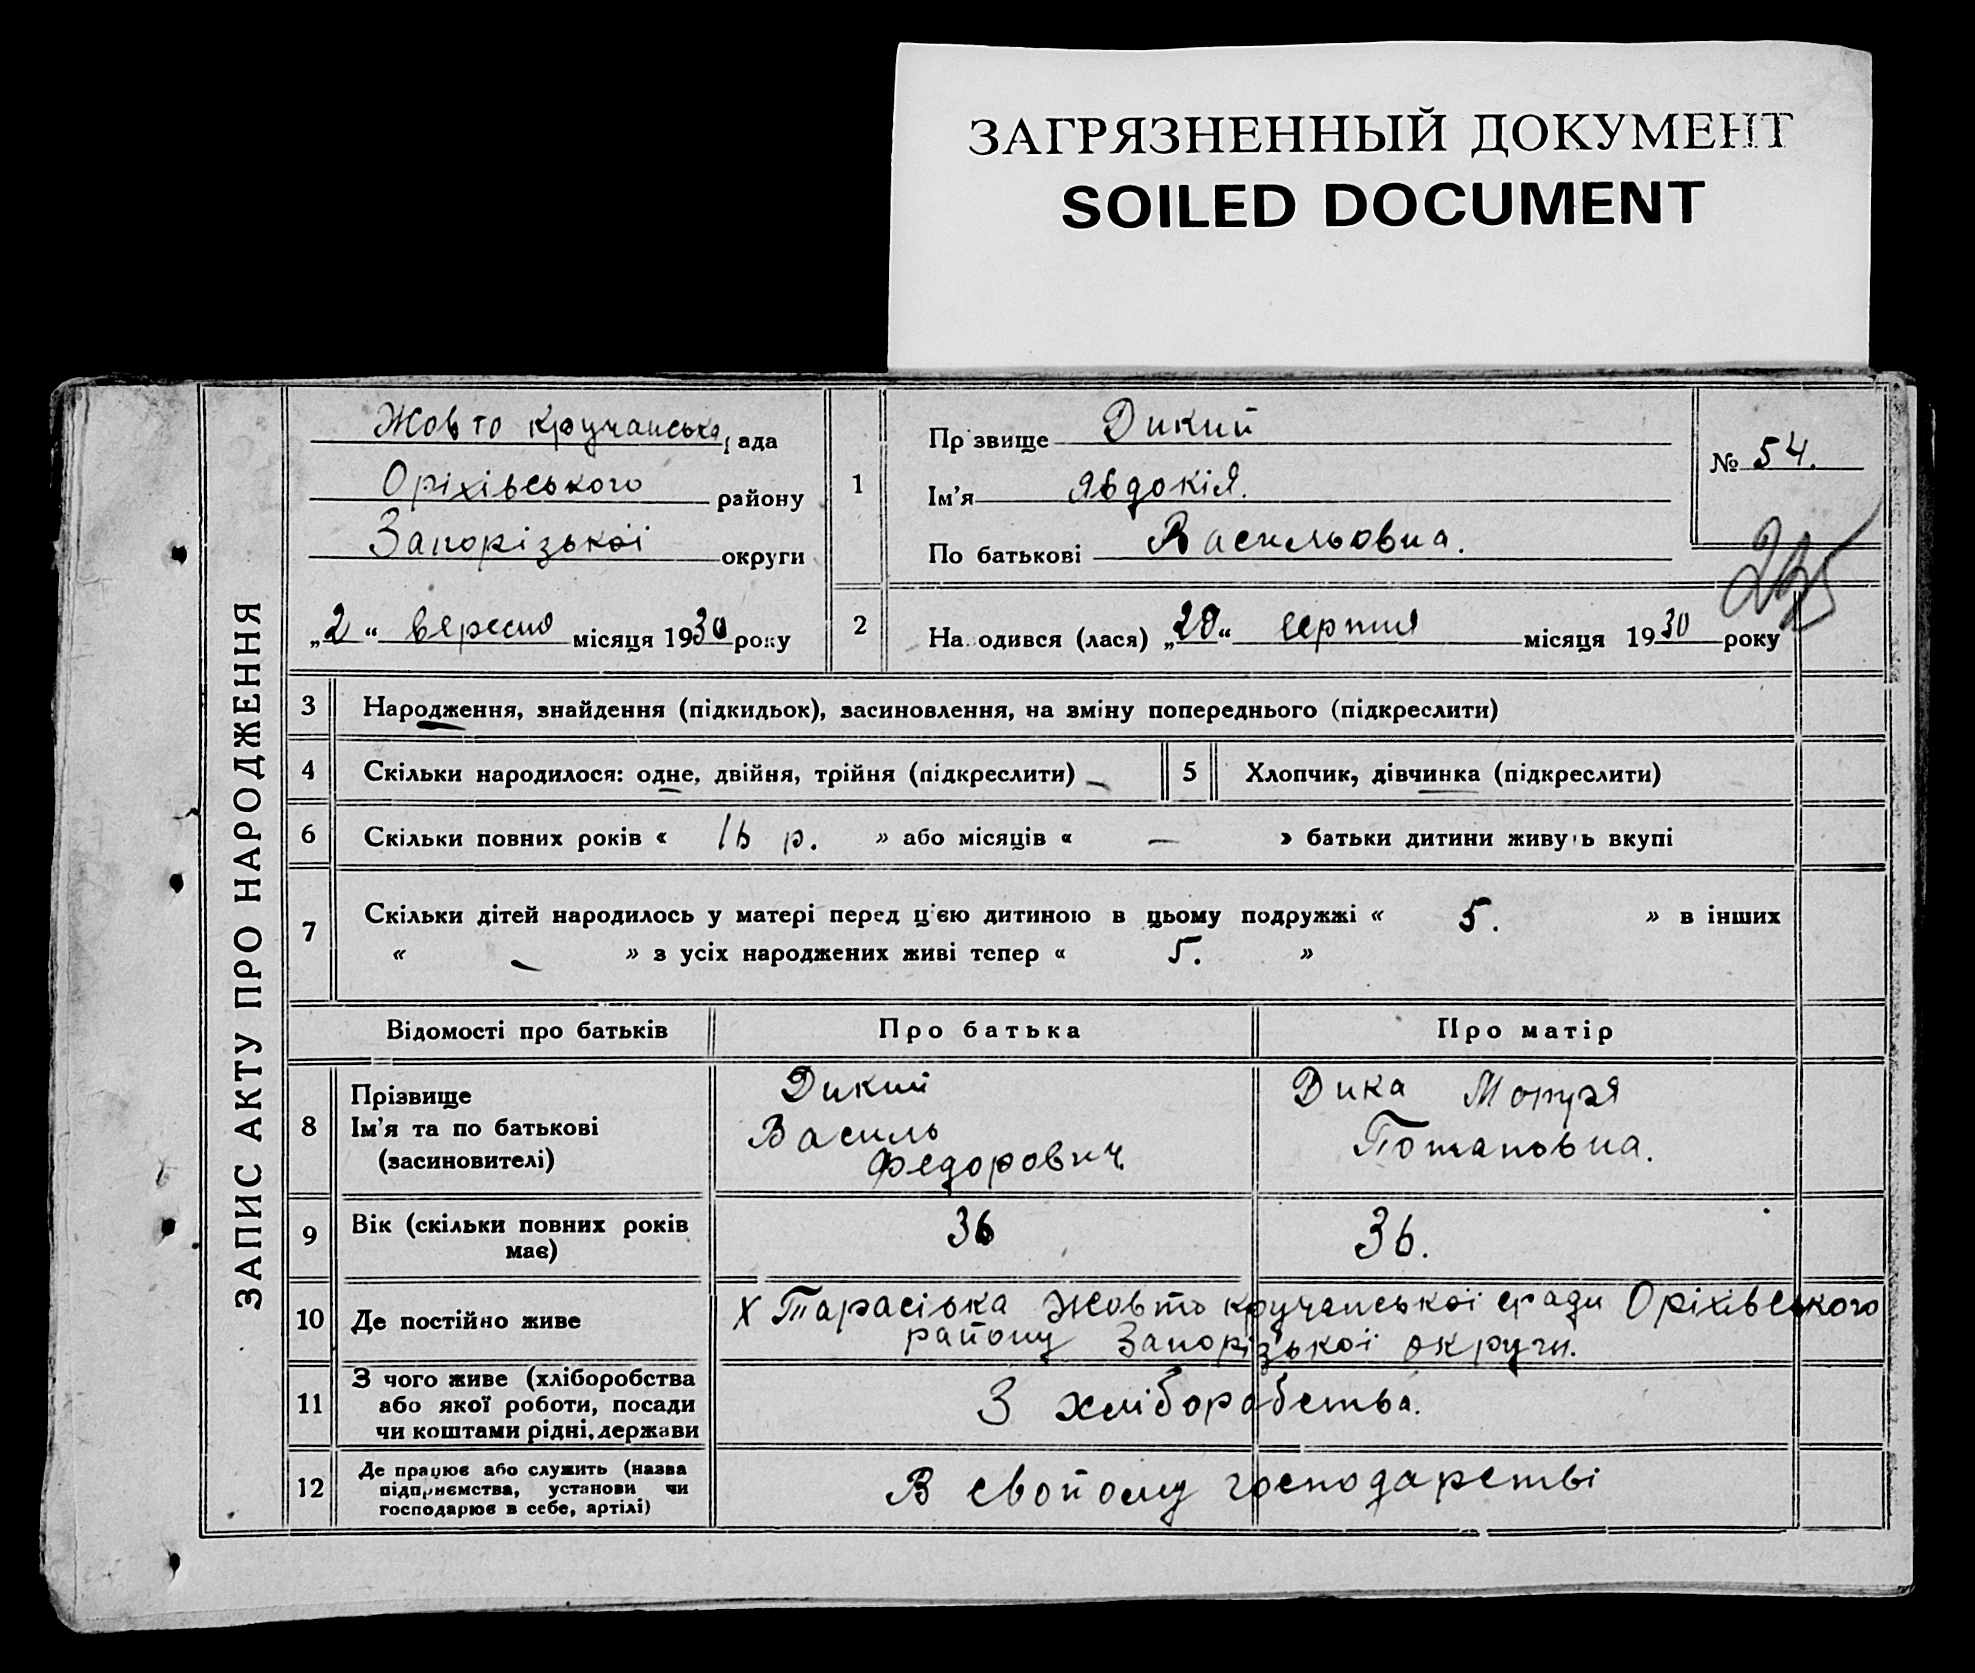 ЗАГРЯЗНЕННЫЙ ДОКУМЕНТ
SOILED DOCUMENT
ЗАПИС АКТУ ПРО НАРОДЖЕННЯ
Жовто кручанська рада
Оріхівського району
Запорізької округи
„2“ вересня місяця 1930 року
1
Прізвище Дикий
Ім’я Явдокія.
По батькові Васильовна.
№ 54.
2
Народився (лася) „28“ серпня місяця 1930 року
3 Народження, знайдення (підкидьок), засиновлення, на зміну попереднього (підкреслити)
4 Скільки народилося: одне, двійня, трійня (підкреслити) –
5 Хлопчик, дівчинка (підкреслити)
6 Скільки повних років « 16 р. » або місяців « — » батьки дитини живуть вкупі
7 Скільки дітей народилось у матері перед цією дитиною в цьому подружжі « 5. » в інших
« – » з усіх народжених живі тепер « 5. »
Відомості про батьків Про батька Про матір
8 Прізвище
Ім’я та по батькові
(засиновителі)
Дикий
Василь
Федорович
Дика
Потаповна.
9 Вік (скільки повних років
має)
36
36.
10 Де постійно живе
х Тарасівка Жовто кручанської сради Оріхівського
району Запорізької округи.
11 З чого живе (хліборобства
або якої роботи, посади
чи коштами рідні, держави
З хліборобства.
12 Де працює або служить (назва
підприємства, установи чи
господарює в себе, артілі)
В свойому господарстві